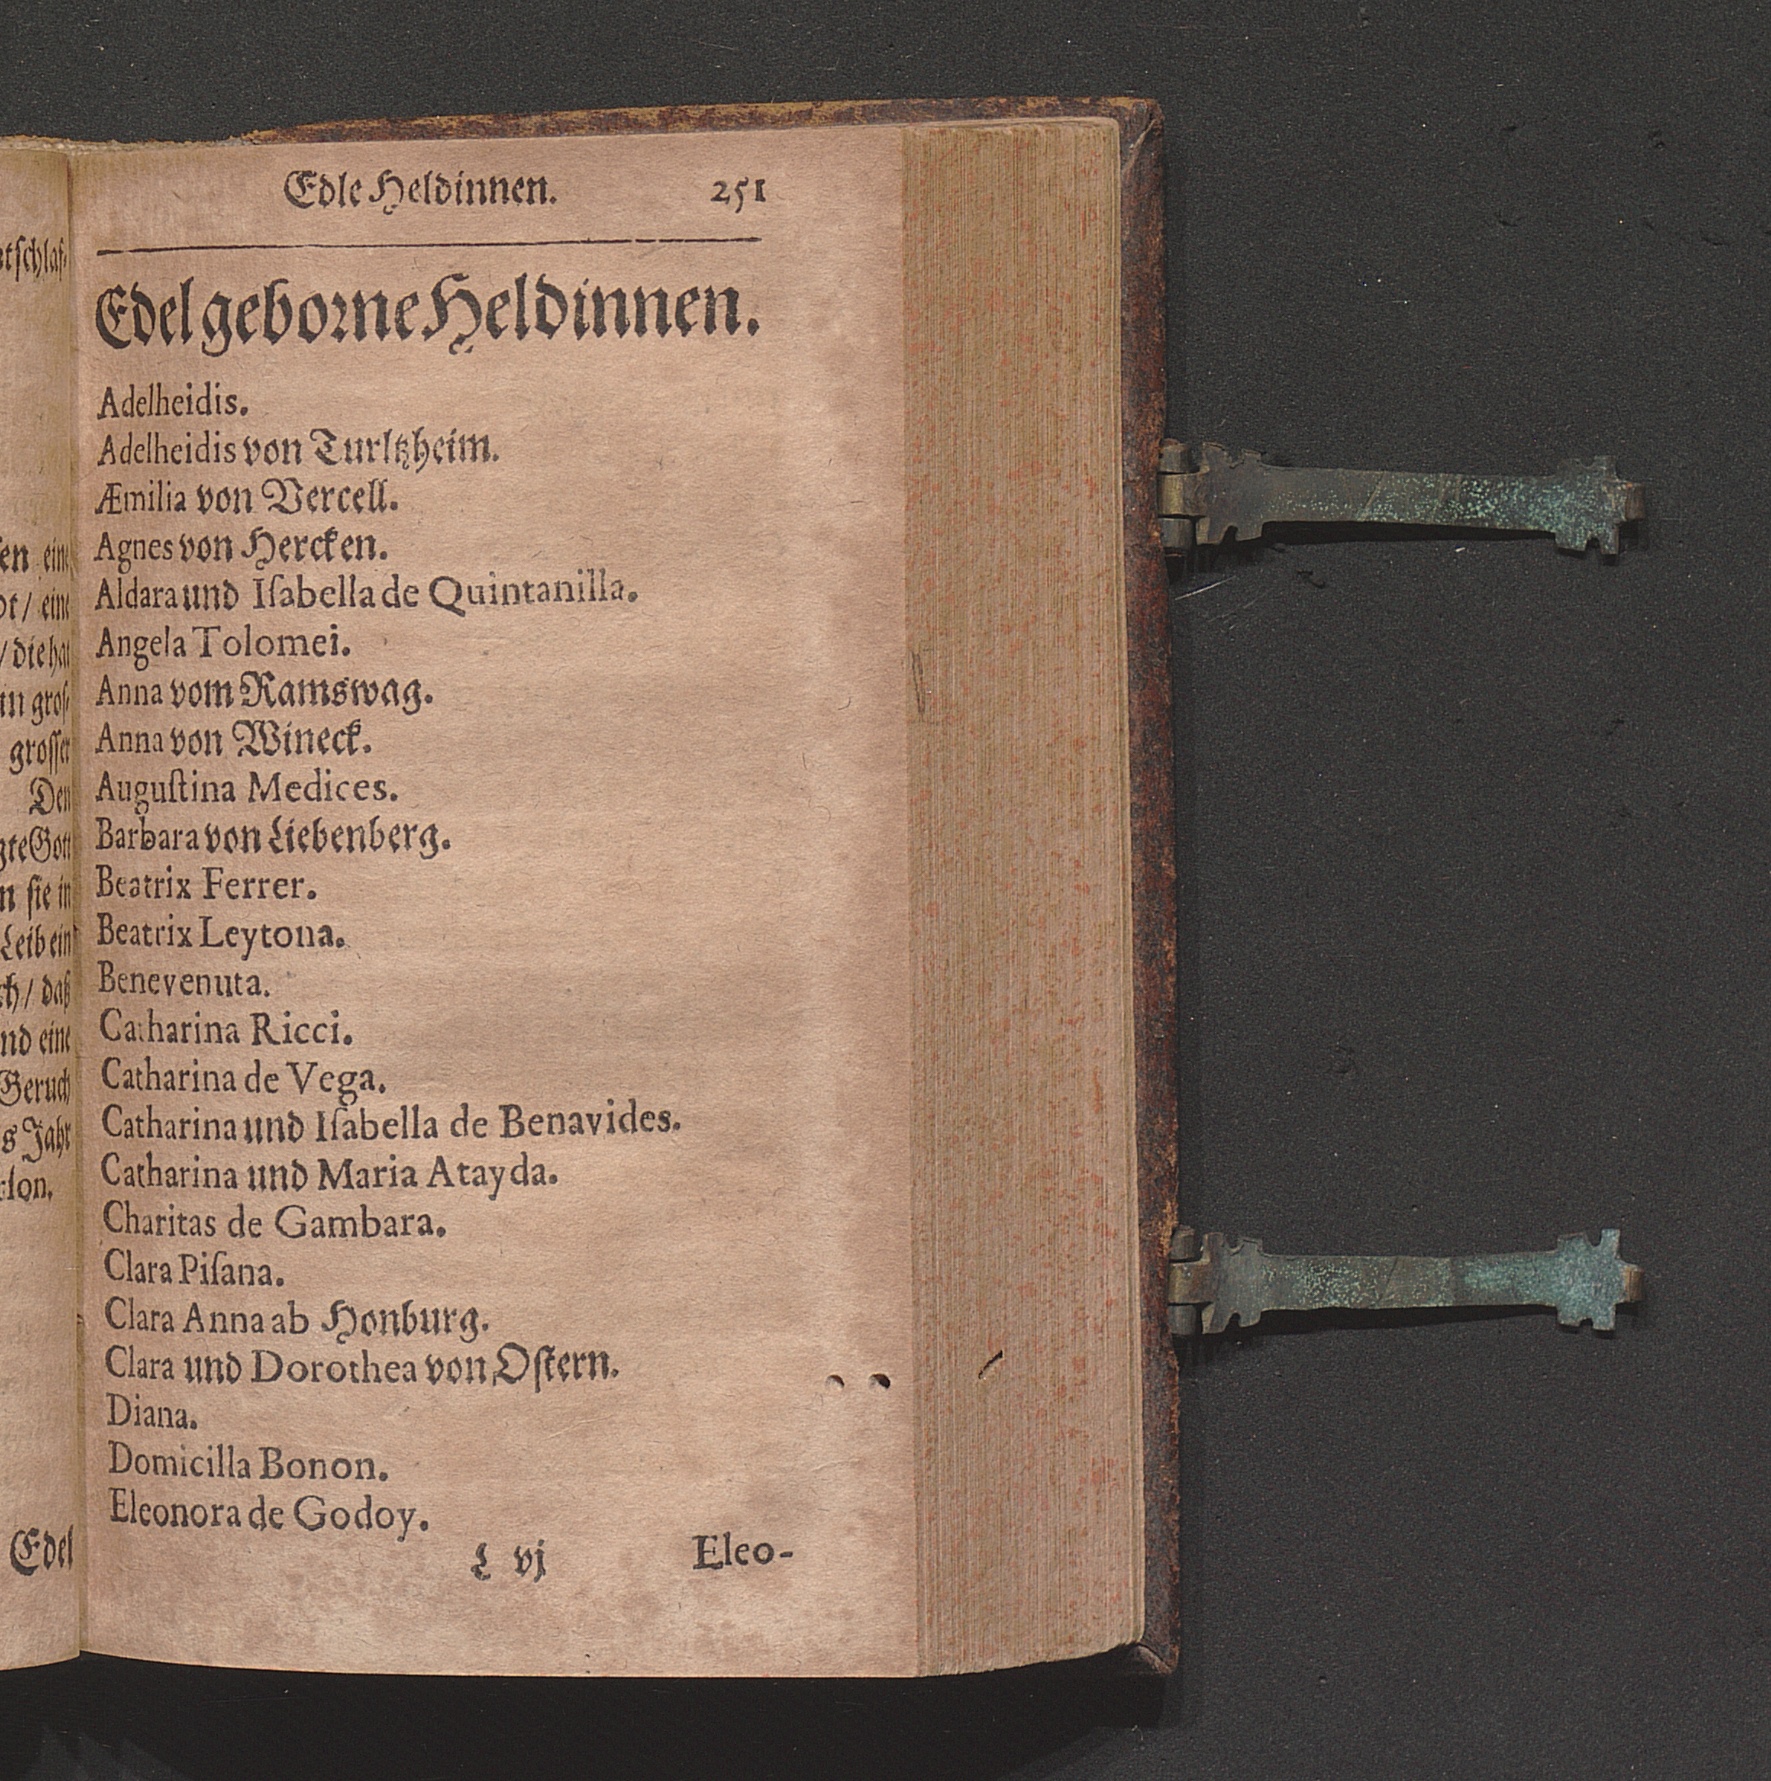 Edle Heldinnen. 251
Edelgeborne Heldinnen.
Adelheidis.
Adelheidis von Turltzheim.
Æmilia von Vercell.
Agnes von Hercken.
Aldara und Iſabella de Quintanilla.
Angela Tolomei.
Anna vom Ramswag.
Anna von Wineck.
Auguſtina Medices.
Barbara von Liebenberg.
Beatrix Ferrer.
Beatrix Leytona.
Benevenuta.
Catharina Ricci.
Catharina de Vega.
Catharina und Iſabella de Benavides.
Catharina und Maria Atayda.
Charitas de Gambara.
Clara Piſana.
Clara Anna ab Honburg.
Clara und Dorothea von Oſtern.
Diana.
Domicilla Bonon.
Eleonora de Godoy.
L vj Eleo-
eine
/ eine
/ die hat
in groſ-
groſſer
Den
Gott
n ſie in
Leib ein
/ daß
eine
Geruch
Jahr
Edel